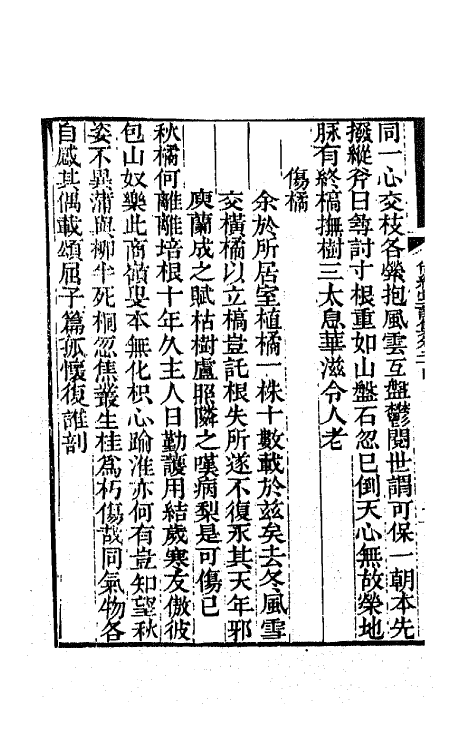 同一心交枝各榮抱風雲互盤鬱閱世謂可保一朝本先
撥縱斧日尋討寸根重如山盤石忽已倒天心無故榮地
脉有終槁撫樹三太息華滋令人老
傷橘
余於所居室植橘一株十數載於兹矣去冬風雪
交橫橘以立槁豈託根失所遂不復永其天年邪
庾蘭成之賦枯樹盧照隣之嘆病梨是可傷已
秋橘何離離培根十年久主人日勤護用結歲寒友傲彼
包山奴樂此商嶺叟本無化枳心踰淮亦何有豈知望秋
姿不異蒲與柳半死桐忽焦叢生桂爲朽傷哉同氣物各
自感其偶載頌屈子篇孤懷復誰剖